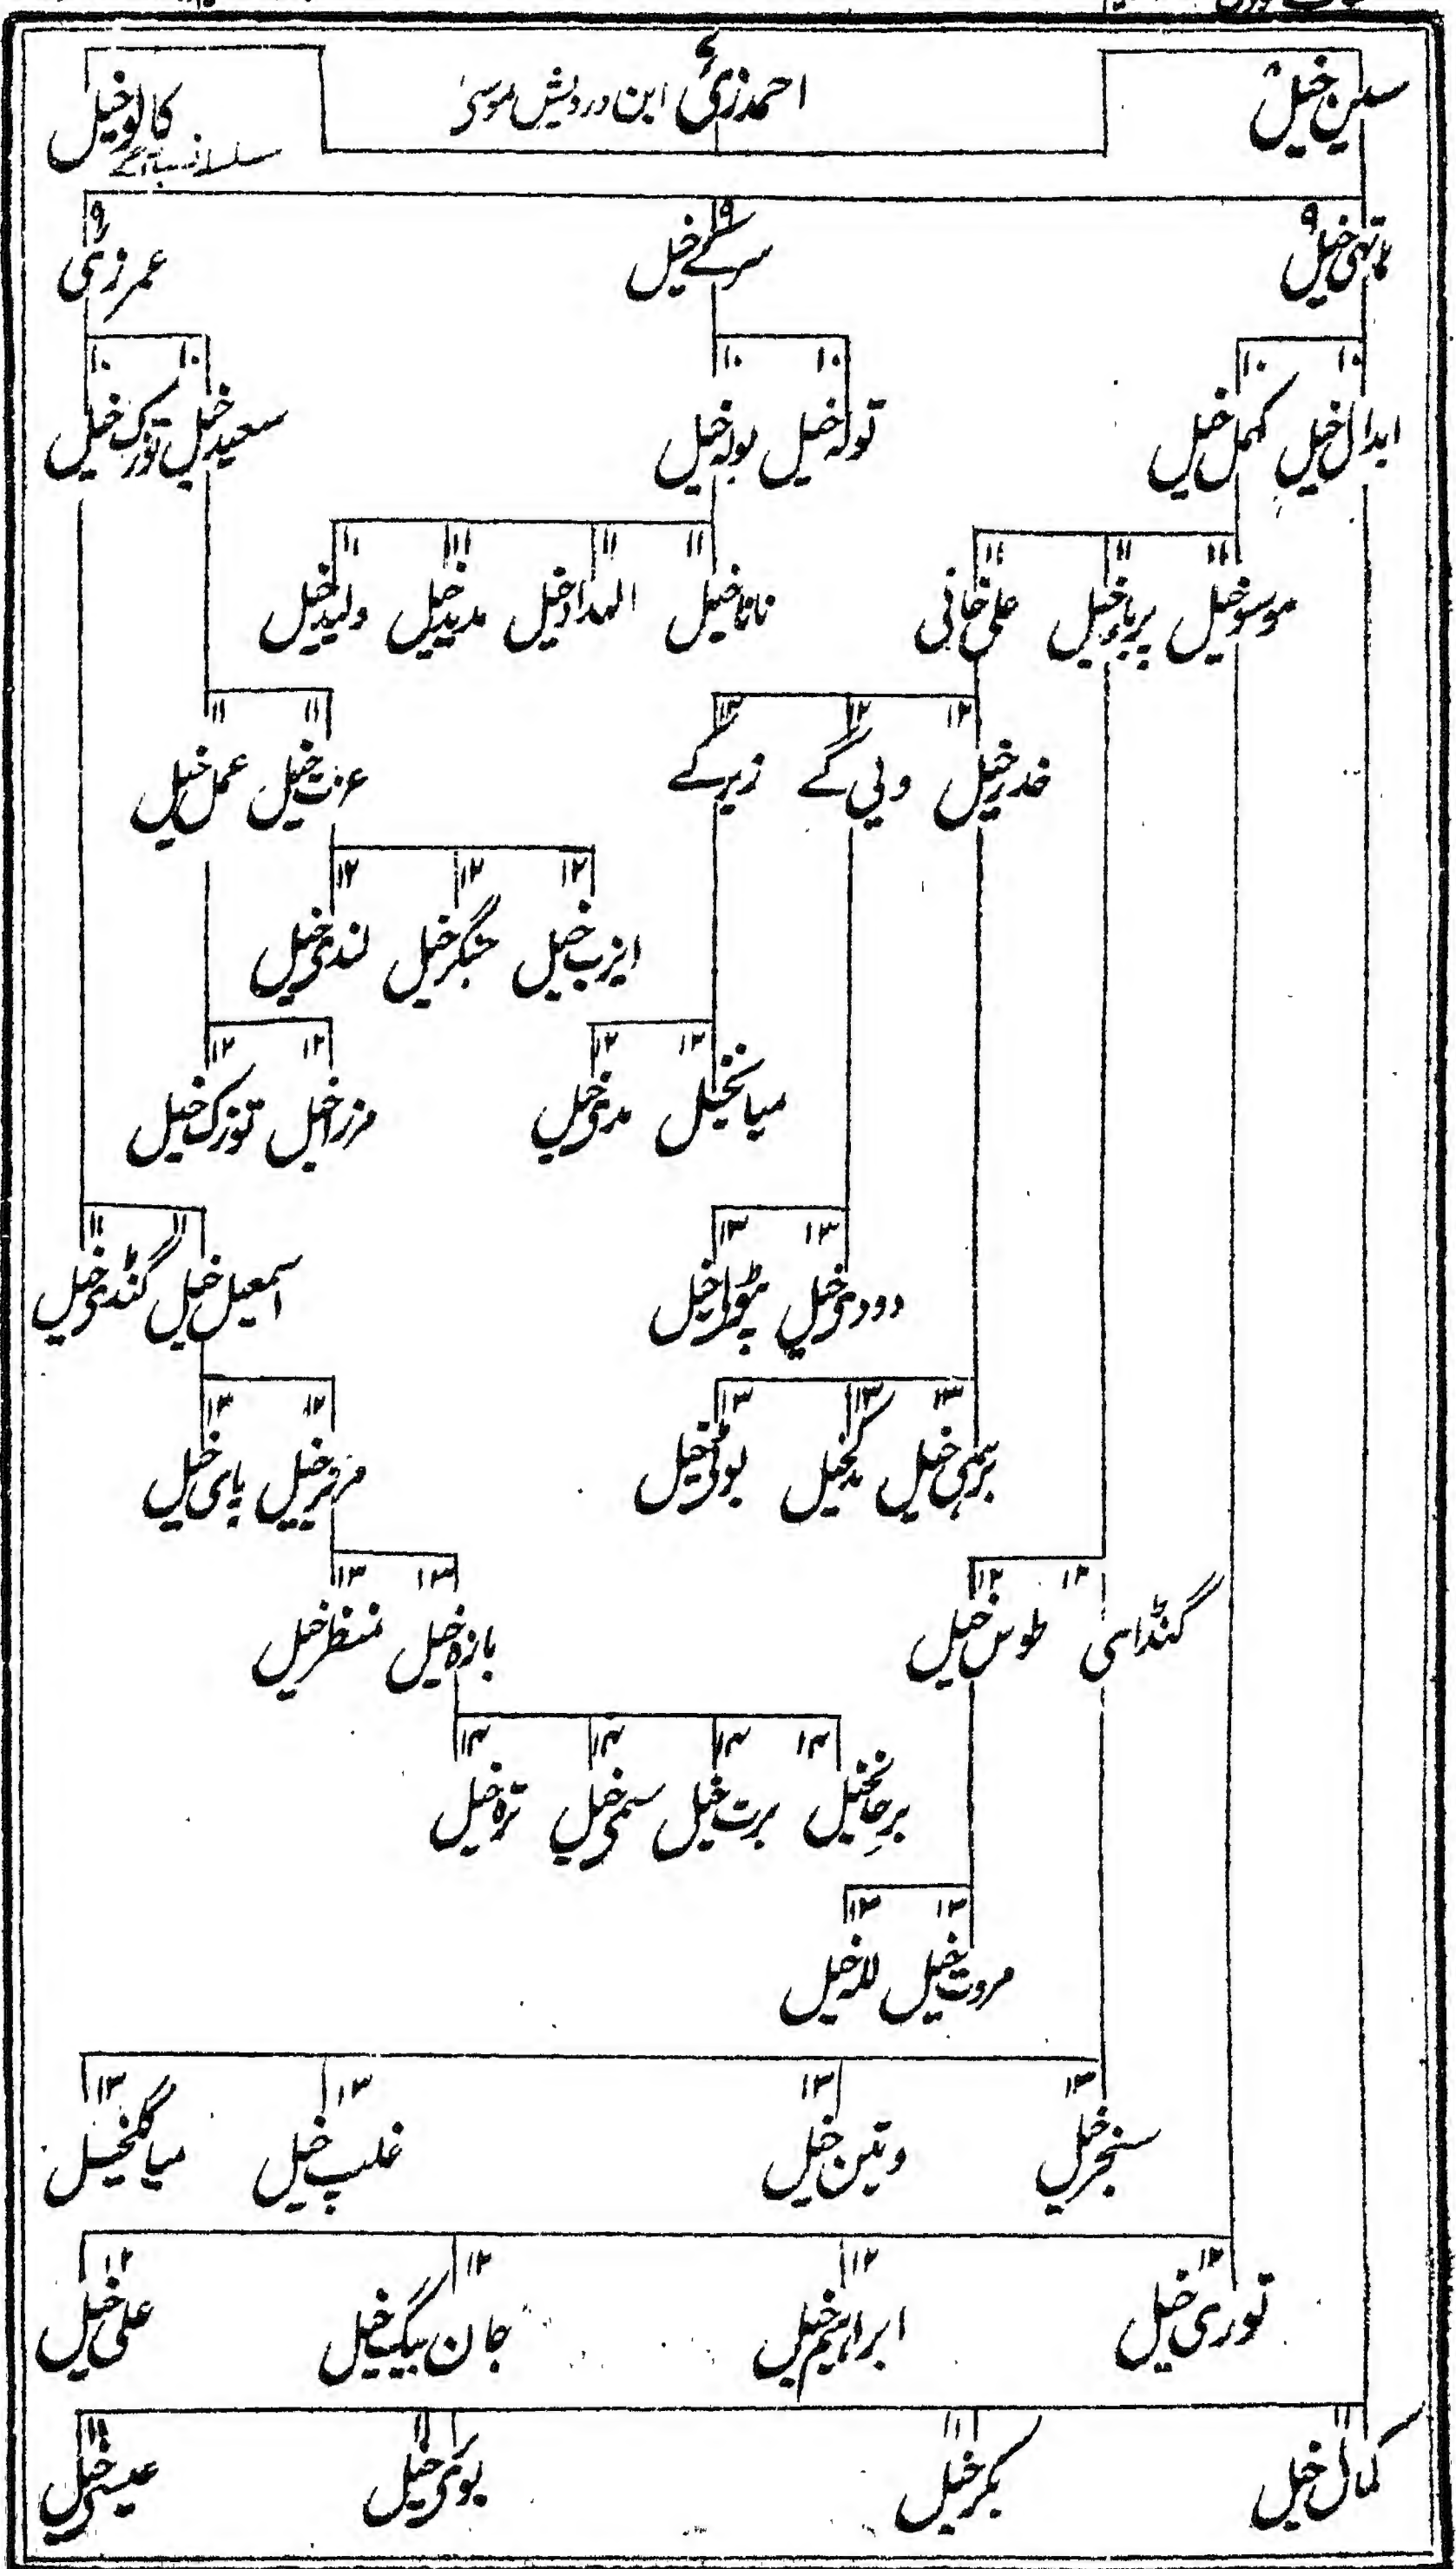 سین خیل ۸ احمدزئی ۷ ابن درویش موسیٰ کالو خیل ۸
ہاتھی خیل ۹ سرکے خیل ۹ عمرزئی ۹
ابدال خیل ۱۰ کہمل خیل ۱۰ تولہ خیل ۱۰ بولہ خیل ۱۰ سعید خیل ۱۰ توزک خیل ۱۰
موسو خیل ۱۱ پربا خیل ۱۱ علی خانی ۱۱ نانا خیل ۱۱ الہداد خیل ۱۱ مدید خیل ۱۱ ولید خیل ۱۱
خدر خیل ۱۲ وبی گے ۱۲ زیرکے ۱۲ عزت خیل ۱۱ عمل خیل ۱۱
ایزب خیل ۱۲ جنگر خیل ۱۲ لندی خیل ۱۲
میانخیل ۱۳ مدی خیل ۱۳ مرزا خیل ۱۲ توزک خیل ۱۲
دودی خیل ۱۳ اسمعیل خیل ۱۱ گنڈی خیل ۱۱
برہمی خیل ۱۳ بوٹی خیل ۱۳ پای خیل ۱۲
گنڈای ۱۲ طوس خیل ۱۲ بازہ خیل ۱۳ منظر خیل ۱۳
برجانخیل ۱۴ برت خیل ۱۴ سمی خیل ۱۴ تڑہ خیل ۱۴
مروت خیل ۱۳ للہ خیل ۱۳
سنجر خیل ۱۳ وتین خیل ۱۳ غلیب خیل ۱۳ میاگلخیل ۱۳
توری خیل ۱۲ ابراہیم خیل ۱۲ جان بیگ خیل ۱۲ علی خیل ۱۲
کمال خیل ۱۱ بکر خیل ۱۱ بوی خیل ۱۱ عیسی خیل ۱۱